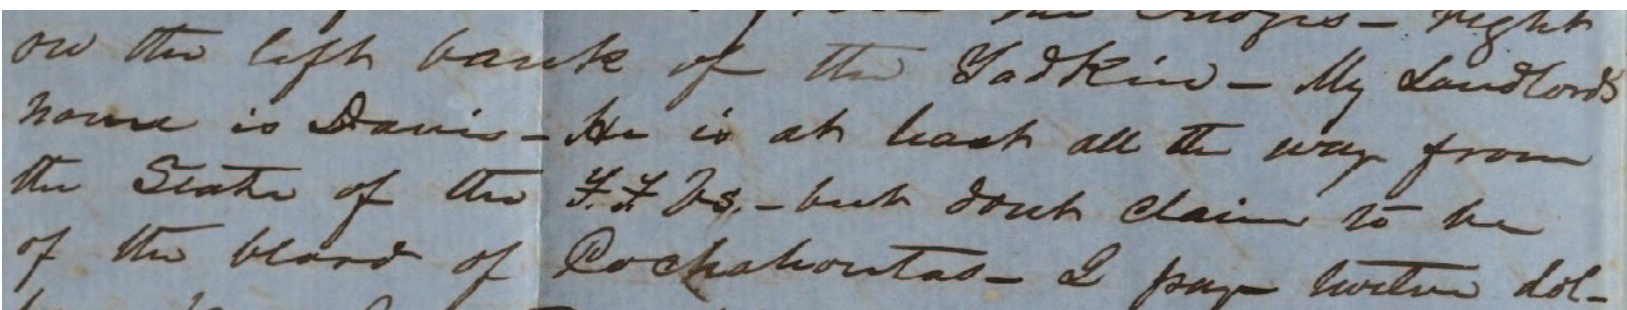 the - right
on the left bank of the Yadkin - My Landlords
name is Davis - He is at least all the way from
the State of the F.F.Vs. - but dont claim to be
of the blood of Pochahontas - I pay twelve dol-